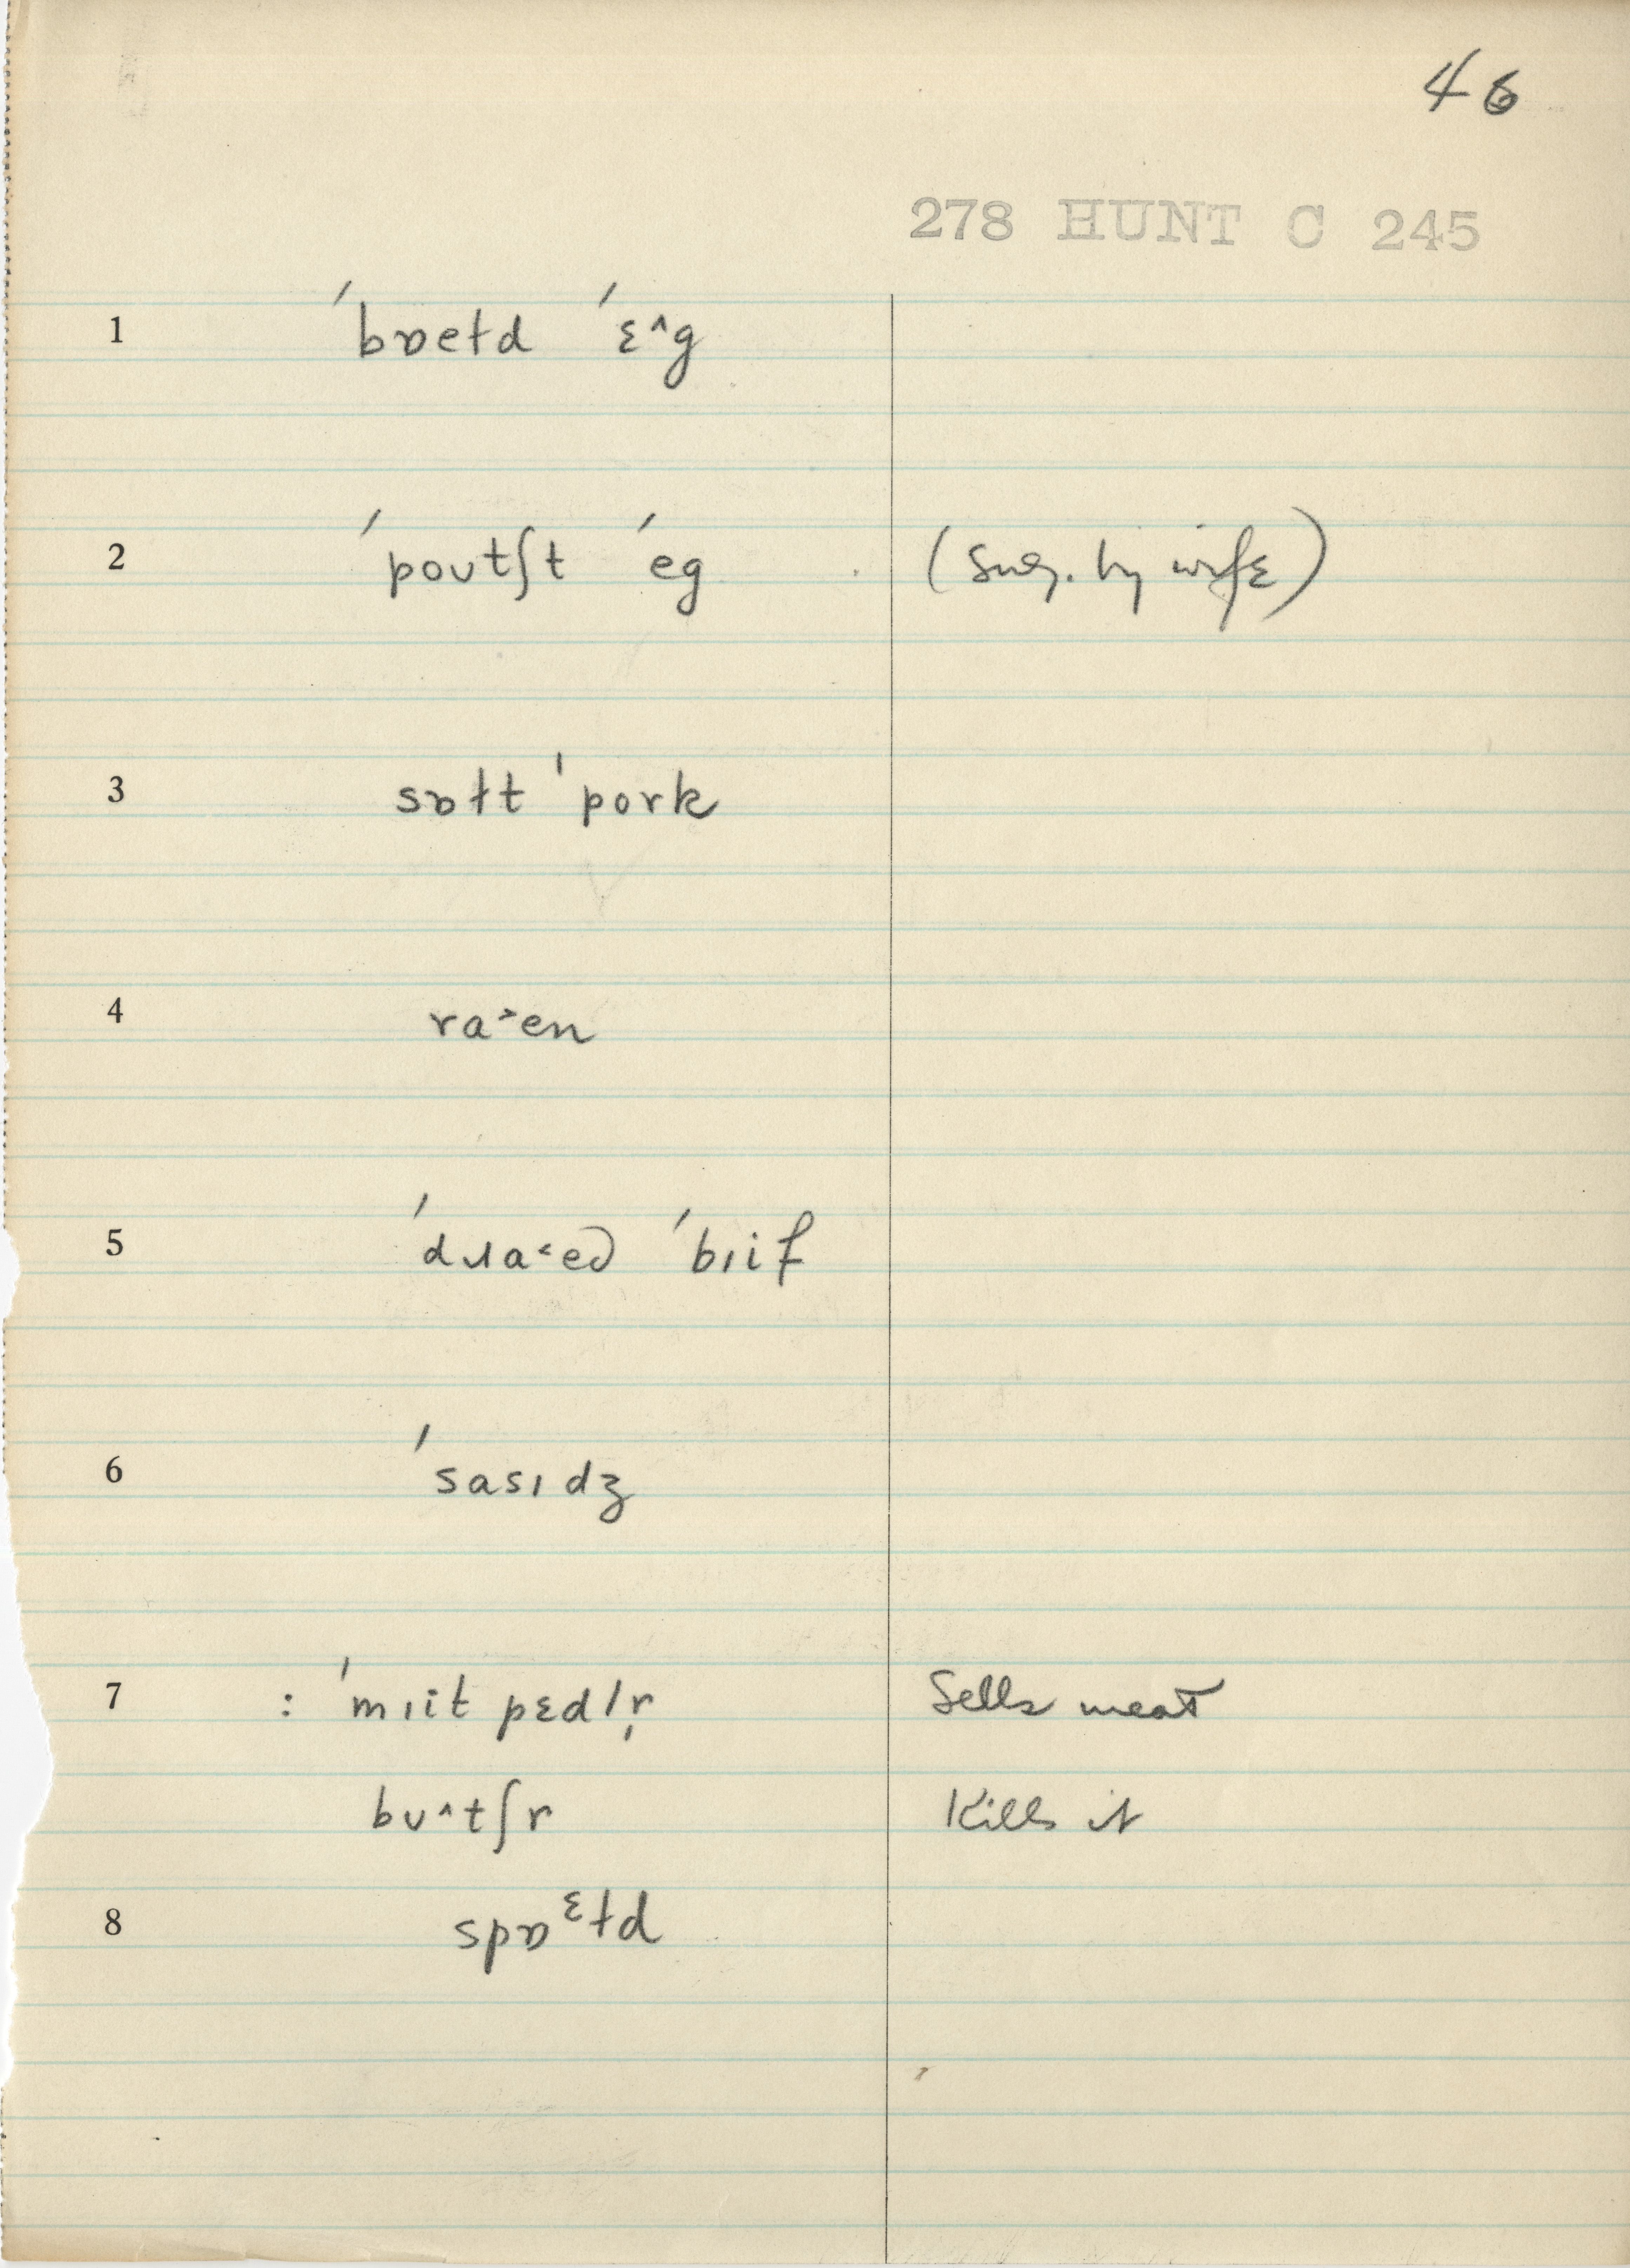 46
278 HUNT C 245
1 ˈbɒeɫd ˈɛ^g
2 ˈpoʊtʃt ˈeg (sug. by wife)
3 sɒɫt ˈpork
4 ra˃en
5 ˈdɹa˂ed ˈbɪif
6 ˈsasɪdʒ
7 : ˈmɪit pɛdlr̩ Sells meat
bʊ^tʃr Kills it
8 spɒᵋɫd